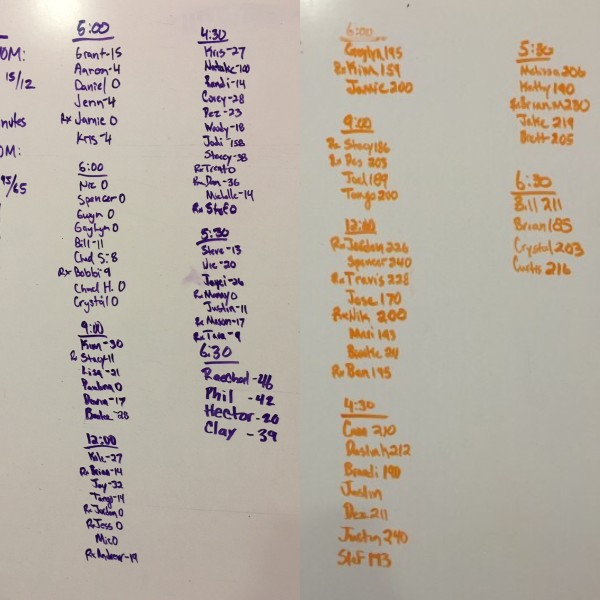 OM:
15/12
nutes
OM:
95/65
5:00
Grant-15
Aaron-4
Daniel 0
Jenn-4
Rx Jamie 0
Kris-4
6:00
Nic 0
Spencer 0
Gwyn 0
Gaylyn 0
Bill-11
Chad S:8
Rx Bobbi 9
Chad H. 0
Crystal 0
9:00
Kim-30
Rx Stacy-11
Lisa-21
Paulina 0
-17
-28
12:00
Kyle-27
Rx Brian-14
Joy-32
Tanya-14
Rx Jordon 0
Rx Jess 0
Mic 0
Rx Andrew-19
4:30
Kris-27
Natalie-100
Randi-14
Corey-28
Dez-23
Woody-18
Jodi-158
Stacey-38
Rx Trent 0
Rx Dan-36
Michelle-14
Rx Stef 0
5:30
Steve-13
Vic-20
-26
Rx Manny 0
Justin-11
Rx Mason-17
Rx Tara-9
6:30
Raechad-46
Phil -42
Hector-20
Clay -39
6:00
Gaylyn 195
Rx Kim 159
Jamie 200
9:00
Rx Stacy 186
Rx 203
Joel 189
Tanya 200
12:00
Rx Jordon 226
Spencer 240
Rx Travis 228
Jose 170
Rx Nik 200
Mari 193
211
Rx Ben 195
4:30
210
212
Brandi 190
Justin
Dez 211
Justin 240
Stef 173
5:30
Melissa 206
Kathy 190
Rx Brian M 280
Jake 219
Brett 205
6:30
Bill 211
Brian 185
Crystal 203
Curtis 216